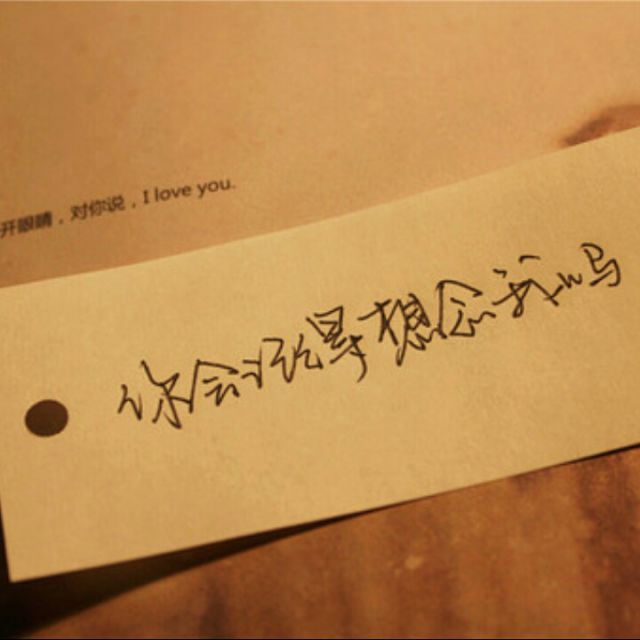 开眼睛，对你说，I love you.
你会沉默想念我吗